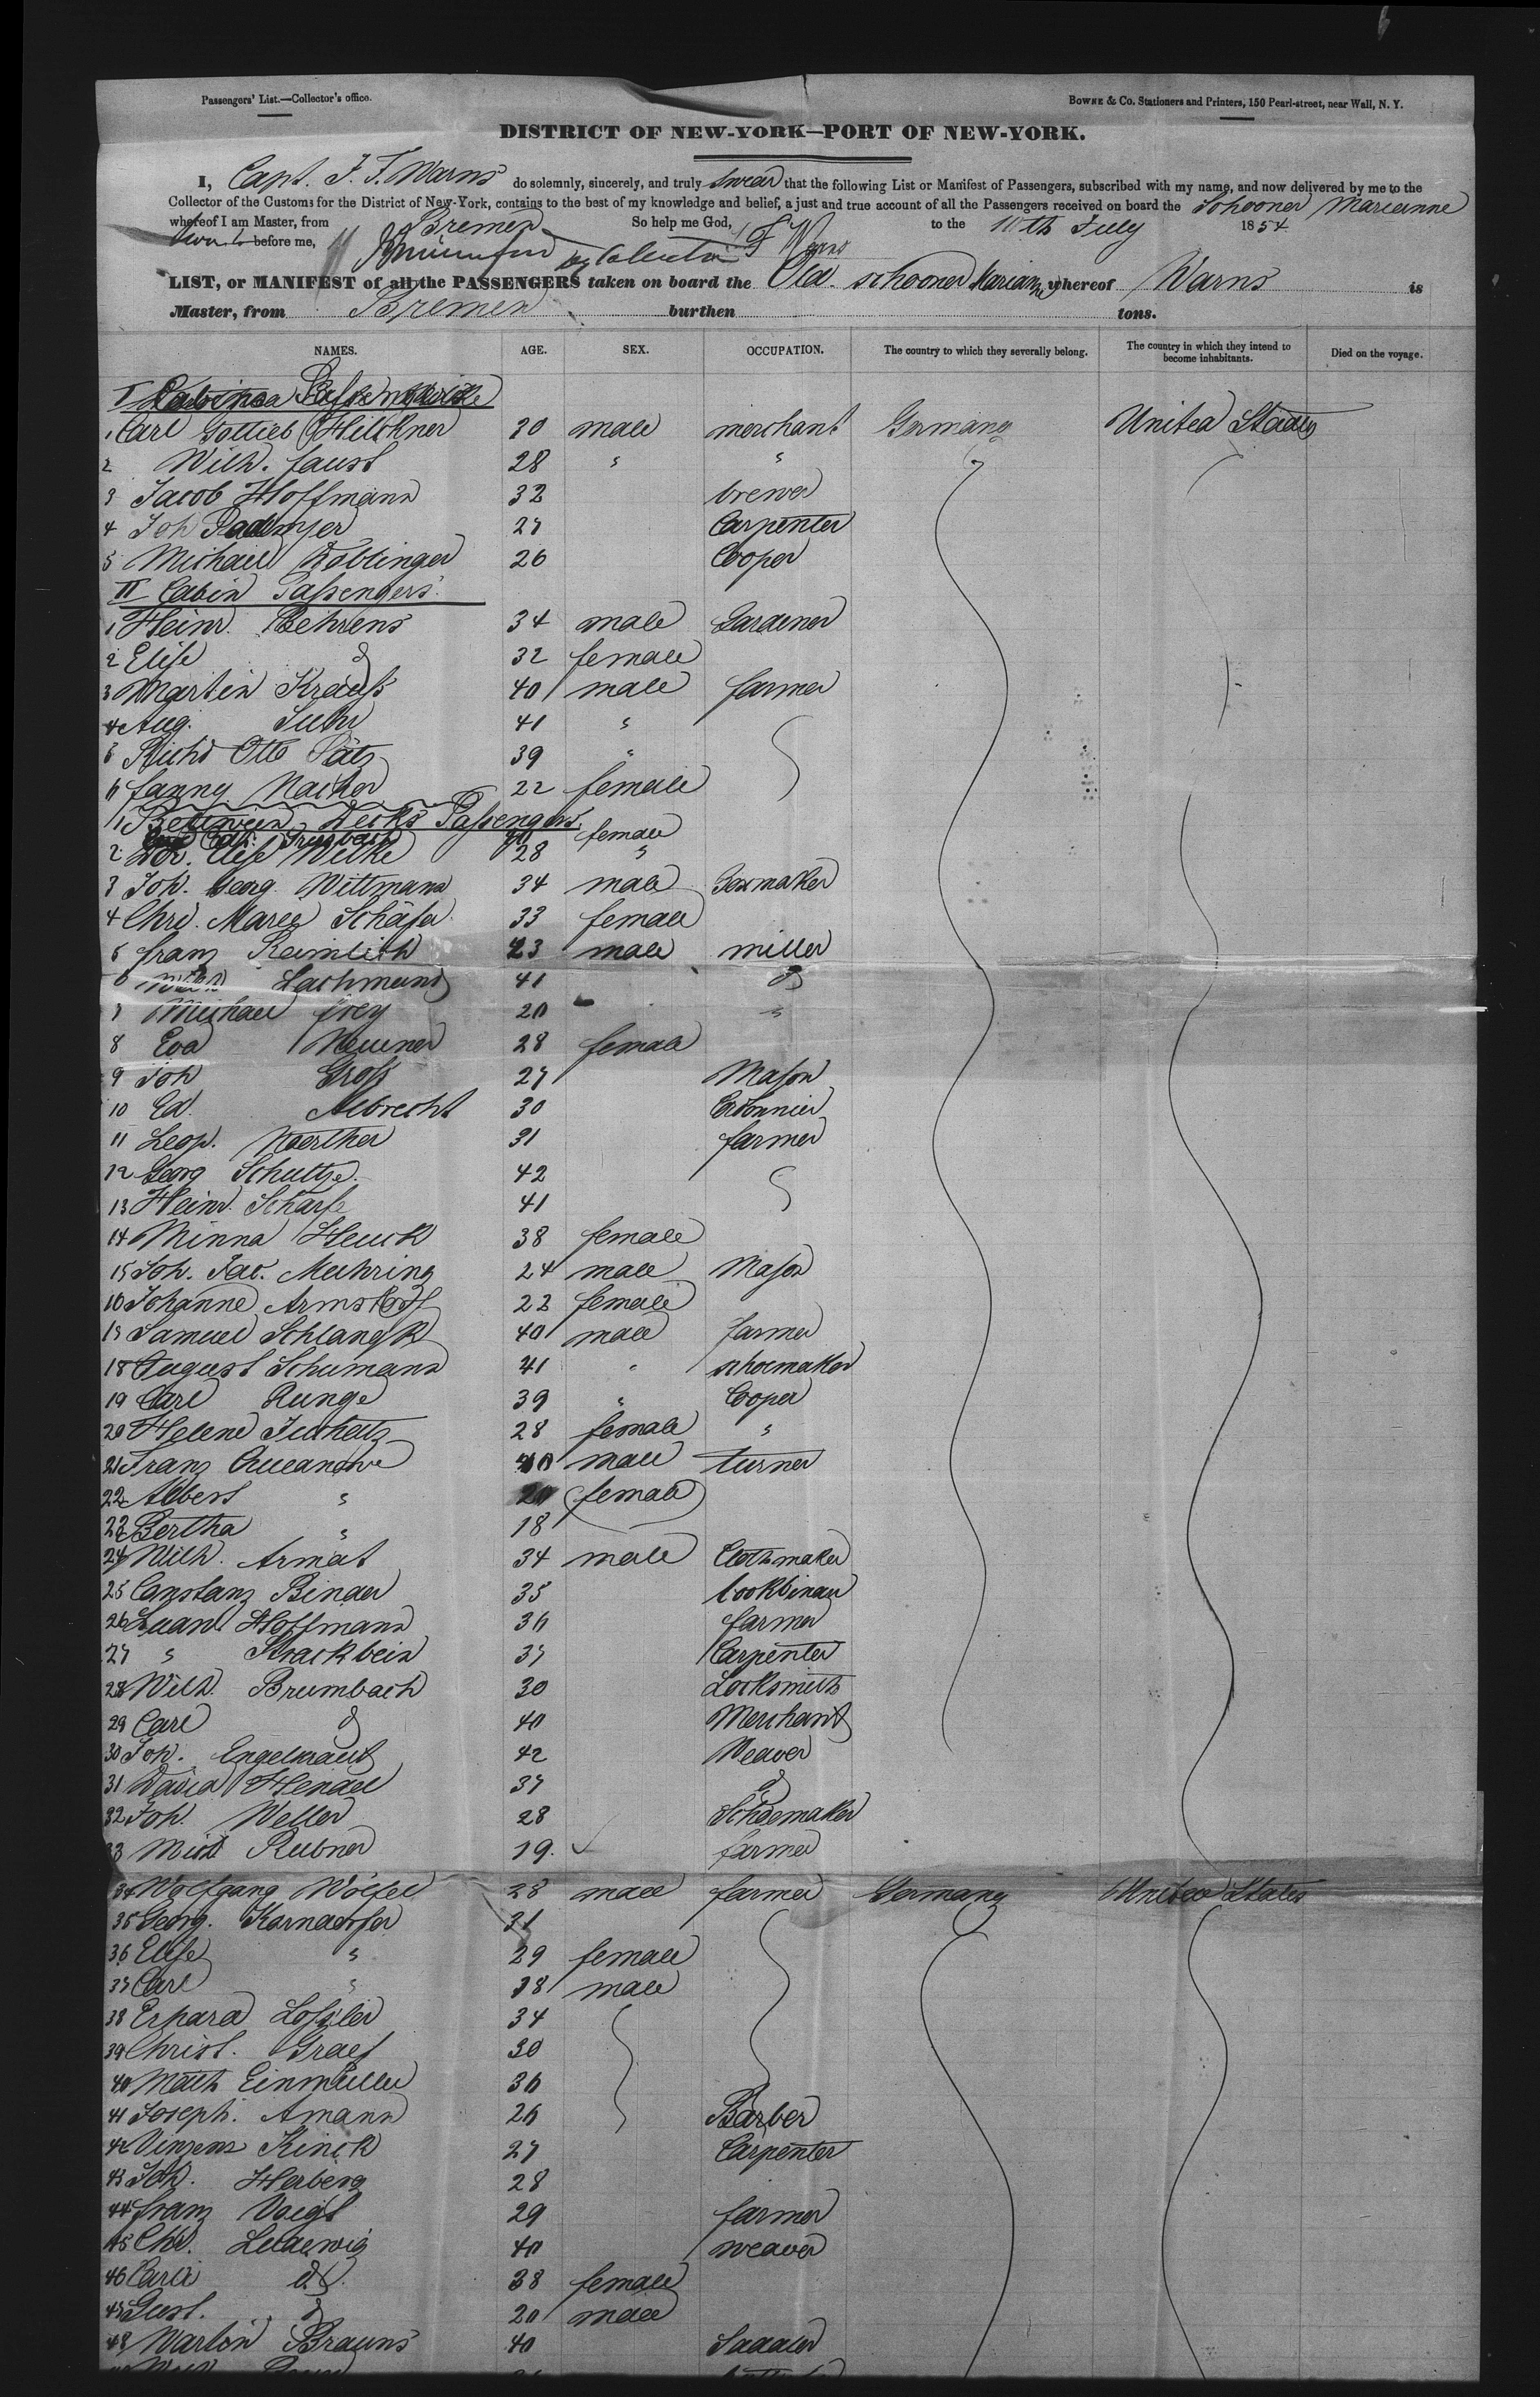 Passengers' List.—Collector's office.
BOWNE & Co. Stationers and Printers, 150 Pearl-street, near Wall, N. Y.
DISTRICT OF NEW-YORK—PORT OF NEW-YORK.
I, Capt. J. F. Warns do solemnly, sincerely, and truly swear that the following List or Manifest of Passengers, subscribed with my name, and now delivered by me to the
Collector of the Customs for the District of New-York, contains to the best of my knowledge and belief, a just and true account of all the Passengers received on board the Schooner Marianne
whereof I am Master, from Bremen So help me God, to the 10th July 1854
before me, F Warns
LIST, or MANIFEST of all the PASSENGERS taken on board the Old. schooner Marianne whereof Warns is
Master, from Bremen burthen tons.
NAMES. AGE. SEX. OCCUPATION. The country to which they severally belong. The country in which they intend to become inhabitants. Died on the voyage.
I
1 Carl Gottlieb Hilchner 20 male merchant Germany United States
2 Wilh. Faust 28 " "
3 Jacob Hoffmann 32 brewer
4 Joh 27 Carpenter
5 Michael Röblinger 26 Cooper
II Cabin Passengers
1 Heinr. Behrens 34 male Gardener
2 Elise d 32 female
3 Martin Krauss 40 male farmer
4 Aug. Suhr 41 "
5 Richd Otto Pätz 39 "
6 Fanny Nacher 22 female
Between Decks Passengers.
1 female
2 Dor. Elise Wilke 28 "
3 Joh. Georg Wittmann 34 male
4 Chrs. Marie Schäfer 33 female
5 Franz Reimlich 23 male miller
6 Lachmund 41 d
7 Michael Frey 20 "
8 Eva Neuner 28 female
9 Joh Gross 27 Mason
10 Ed. Albrecht 30
11 Leop. Koerther 31 farmer
12 Georg Schultze 42
13 Heinr. Scharfe 41
14 Minna Heuck 38 female
15 Joh. Jac. Muhring 24 male Mason
16 Johanne 22 female
17 Samuel Schlangk 40 male farmer
18 August Schumann 41 " schoemaker
19 Carl Runge 39 " Cooper
20 Helene 28 female "
21 Franz 40 male turner
22 Albert " 20 female
23 Bertha " 18
24 Wilh. Armat 34 male Clothmaker
25 Constanz Binder 35 bookbinder
26 Hoffmann 36 farmer
27 " Strackbein 37 Carpenter
28 Wilh. Brumbach 30 Locksmith
29 Carl d 40 Merchant
30 Joh. Engelhaut 42 Weaver
31 David Hendel 37 d
32 Joh. Weller 28 Schoemaker
33 Mich Rubner 19. farmer
34 Wolfgang Wölfel 28 male farmer Germany United States
35 Georg. Karndorfer 31
36 Elise " 29 female
37 Carl " 38 male
38 Erhard Lossler 34
39 Christ. Graef 30
40 Math Einmüller 36
41 Joseph. Amann 26 Barber
42 Vinzens Kinck 27 Carpenter
43 Joh. Herberg 28
44 Franz Voigt 29 farmer
45 Chr. Ludewig 40 weaver
46 Carli d 38 female
47 Gust. d 20 male
48 Martin Brauns 40 Saddler